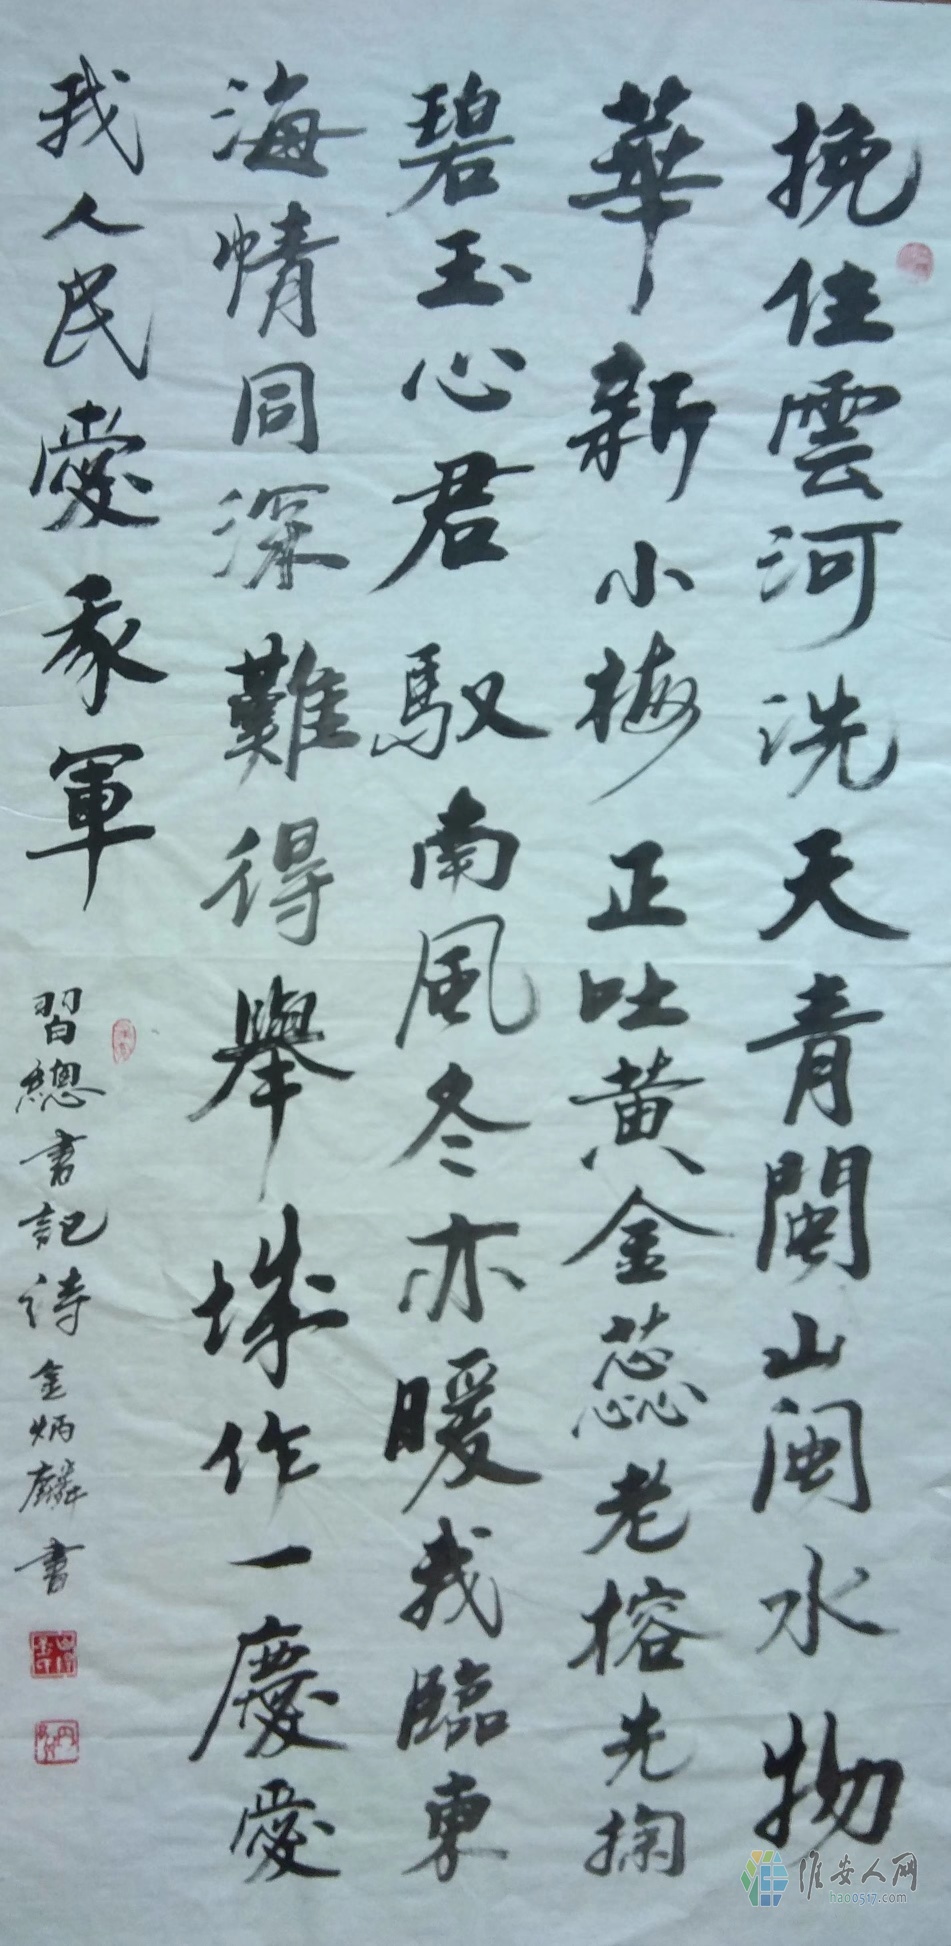 挽住雲河洗天青閩山閩水物
華新小梅正吐黄金蕊老榕先掬
碧玉心君馭南風冬亦暖我臨東
海情同深難得舉城作一慶愛
我人民愛我軍
習總書記詩金炳麟書
淮安人网
hao0517.com